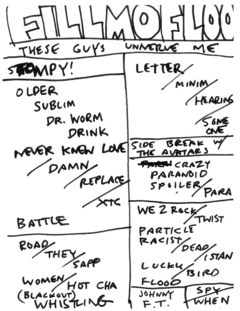 FILLMOFLOO
THESE GUYS UNNERVE ME
STOMPY!
OLDER
SUBLIM
DR. WORM
DRINK
NEVER KNEW LOVE
DAMN
REPLACE
XTC
BATTLE
ROAD
THEY
SAPP
WOMEN
HOT CHA
(BLACKOUT)
WHISTLING
LETTER
MINIM
HEARING
SOME
ONE
SIDE BREAK W/
THE AVATARS
CRAZY
PARANOID
SPOILER
PARA
WE 2 ROCK
TWIST
PARTICLE
RACIST
DEAD
ISTAN
LUCKY
BIRD
FLOOD
JOHNNY
F.T.
SPY
WHEN